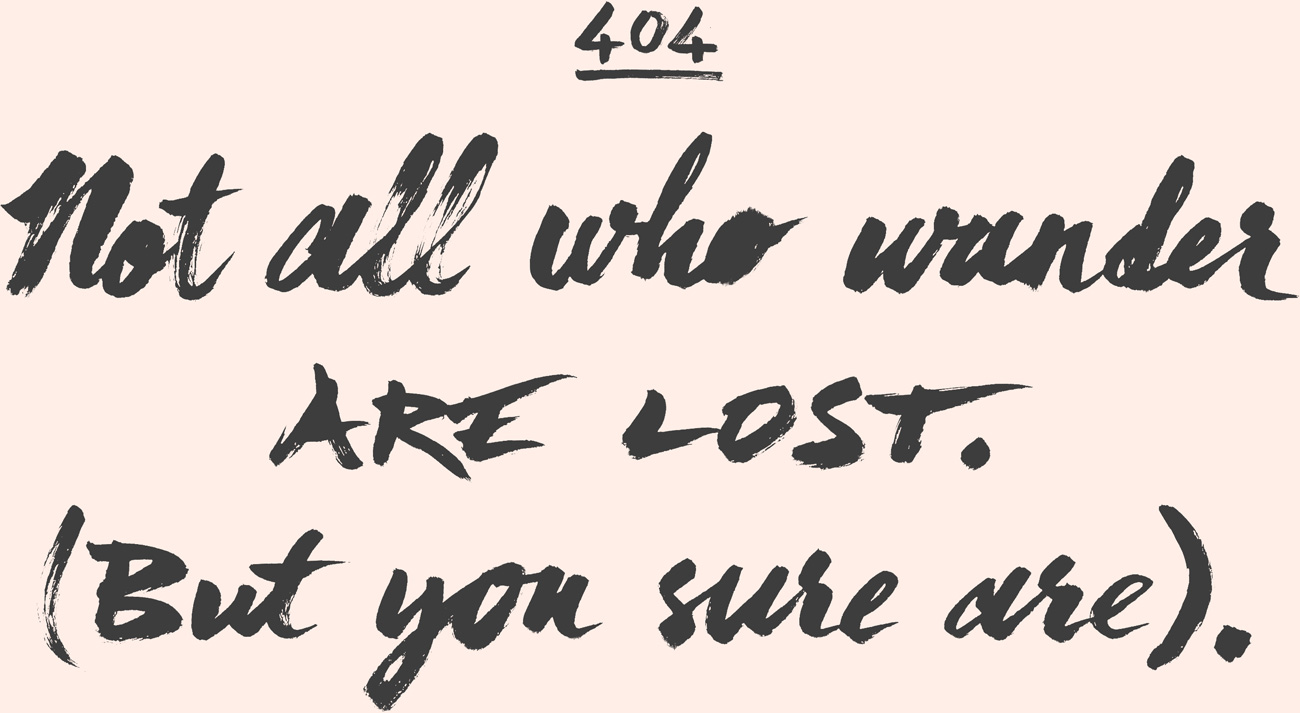 404
Not all who wander
ARE LOST.
(But you sure are).